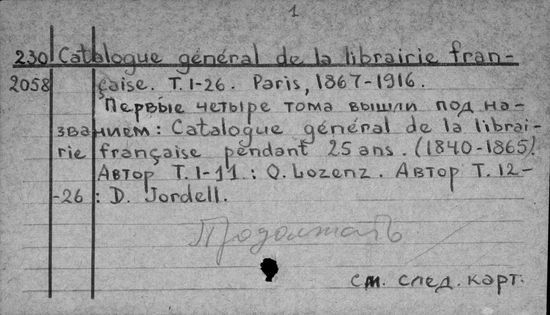 1
230 Catalogue général de la librairie fran-
2058 çaise. T. 1-26. Paris, 1867-1916.
Первые четыре тома вышли под на-
званием: Catalogue général de la librai-
rie française pendant 25 ans. (1840-1865).
Автор Т. 1-11.: O. Lozenz. Автор Т. 12-
-26 : D. Jordell.
Продолжать
см. след. карт.